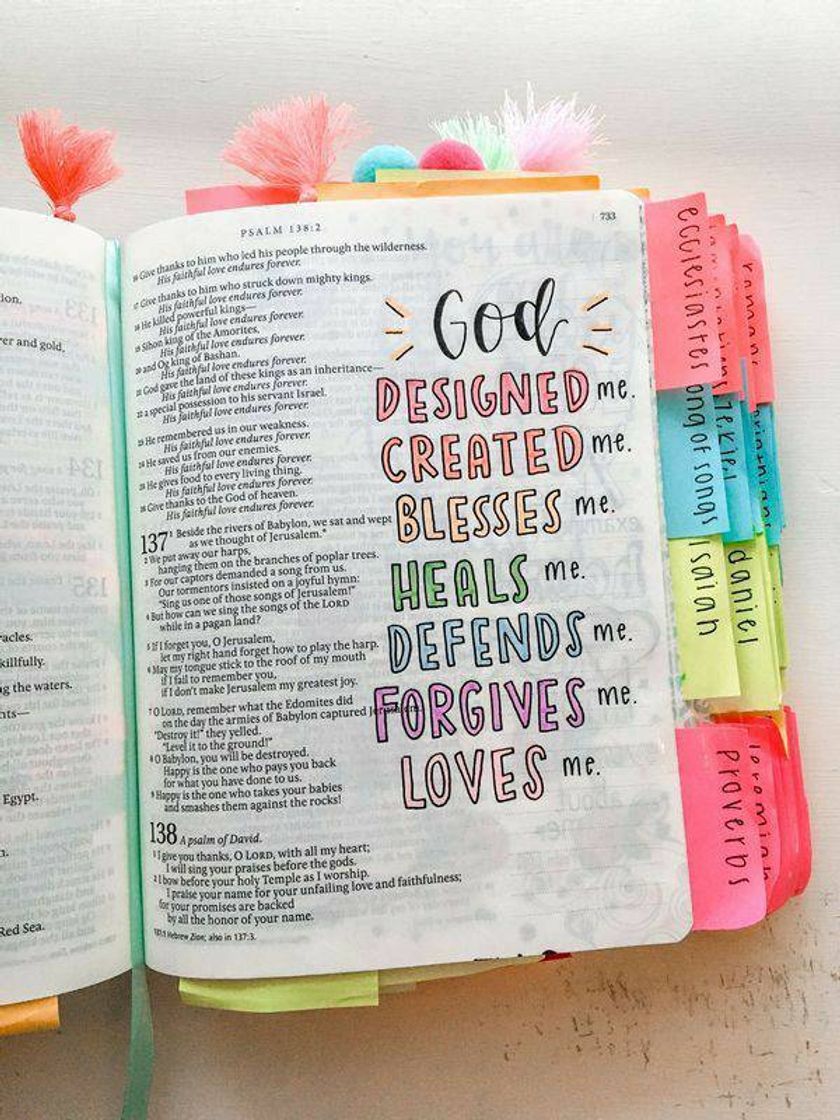 PSALM 138:2
733
16 Give thanks to him who led his people through the wilderness.
His faithful love endures forever.
17 Give thanks to him who struck down mighty kings.
His faithful love endures forever.
18 He killed powerful kings—
His faithful love endures forever.
19 Sihon king of the Amorites,
His faithful love endures forever.
20 and Og king of Bashan.
His faithful love endures forever.
21 God gave the land of these kings as an inheritance—
His faithful love endures forever.
22 a special possession to his servant Israel.
His faithful love endures forever.
23 He remembered us in our weakness.
His faithful love endures forever.
24 He saved us from our enemies.
His faithful love endures forever.
25 He gives food to every living thing.
His faithful love endures forever.
26 Give thanks to the God of heaven.
His faithful love endures forever.
137 1 Beside the rivers of Babylon, we sat and wept
as we thought of Jerusalem.*
2 We put away our harps,
hanging them on the branches of poplar trees.
3 For our captors demanded a song from us.
Our tormentors insisted on a joyful hymn:
“Sing us one of those songs of Jerusalem!”
4 But how can we sing the songs of the LORD
while in a pagan land?
5 If I forget you, O Jerusalem,
let my right hand forget how to play the harp.
6 May my tongue stick to the roof of my mouth
if I fail to remember you,
if I don’t make Jerusalem my greatest joy.
7 O LORD, remember what the Edomites did
on the day the armies of Babylon captured Jerusalem.
“Destroy it!” they yelled.
“Level it to the ground!”
8 O Babylon, you will be destroyed.
Happy is the one who pays you back
for what you have done to us.
9 Happy is the one who takes your babies
and smashes them against the rocks!
138 A psalm of David.
1 I give you thanks, O LORD, with all my heart;
I will sing your praises before the gods.
2 I bow before your holy Temple as I worship.
I praise your name for your unfailing love and faithfulness;
for your promises are backed
by all the honor of your name.
137:1 Hebrew Zion; also in 137:3.
God
DESIGNED me.
CREATED me.
BLESSES me.
HEALS me.
DEFENDS me.
FORGIVES me.
LOVES me.
ecclesiastes
romans
song of songs
isaiah
daniel
proverbs
and gold,
killfully.
the waters.
Egypt.
Red Sea.